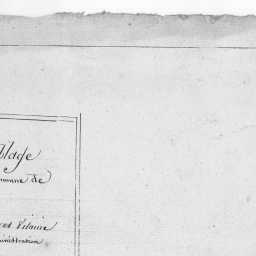 blage
e
mmune de
et Vilaine
ministration